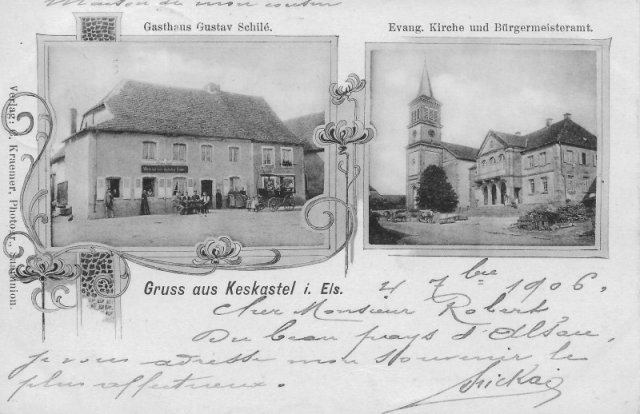 Maison de mon cousin
Gasthaus Gustav Schilé.
Evang. Kirche und Bürgermeisteramt.
Gruss aus Keskastel i. Els.
4 7bre 1906.
Cher Monsieur Robert,
Du beau pays d'Alsace,
je vous adresse mon souvenir le
plus affectueux.
Verlag: J. Kraemer, Photogr.,